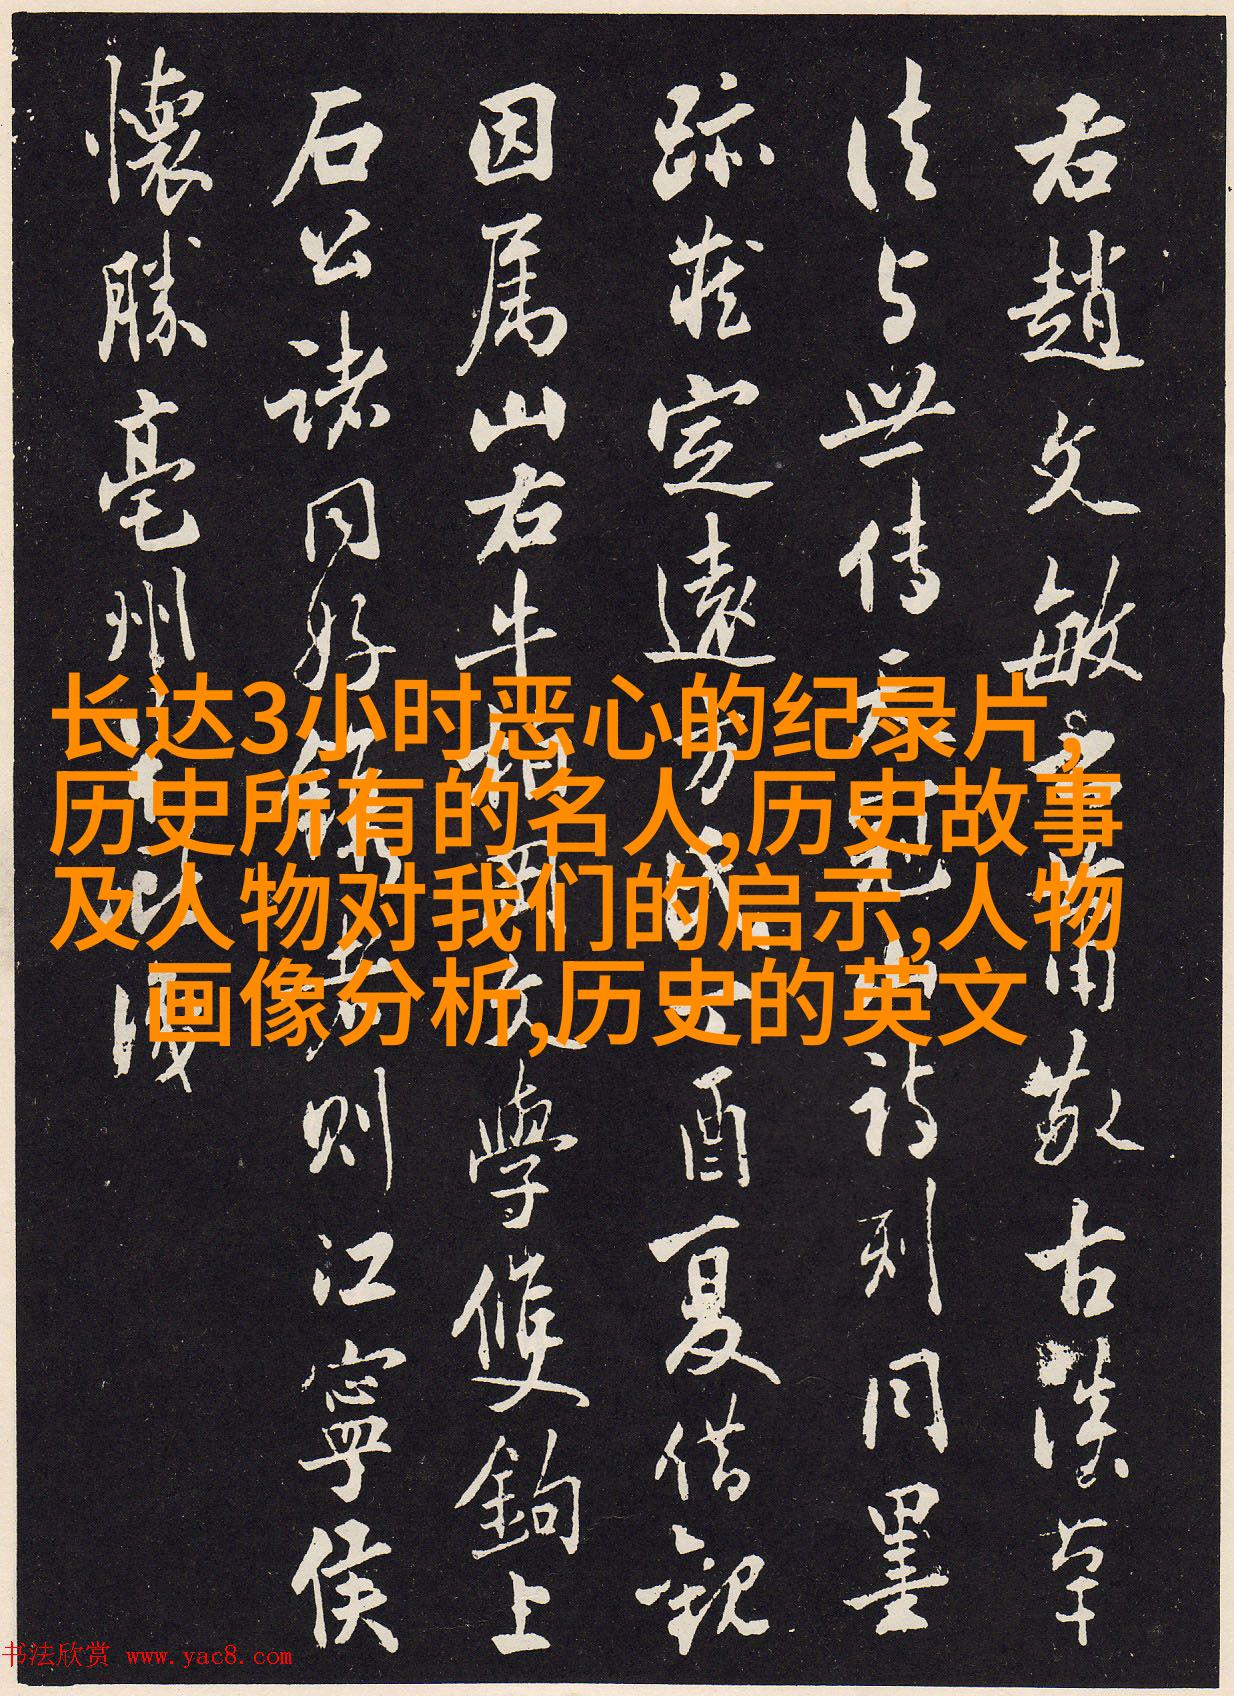 右趙文敏敬古漢草
法与世傳詩刻同墨
跡藏定遠方氏酉夏借觀
因属山右牛學雙鉤上
石公諸同好則江寧侯
懷勝亳州識
长达3小时恶心的纪录片,
历史所有的名人,历史故事
及人物对我们的启示,人物
画像分析,历史的英文
书法欣赏 www.yac8.com